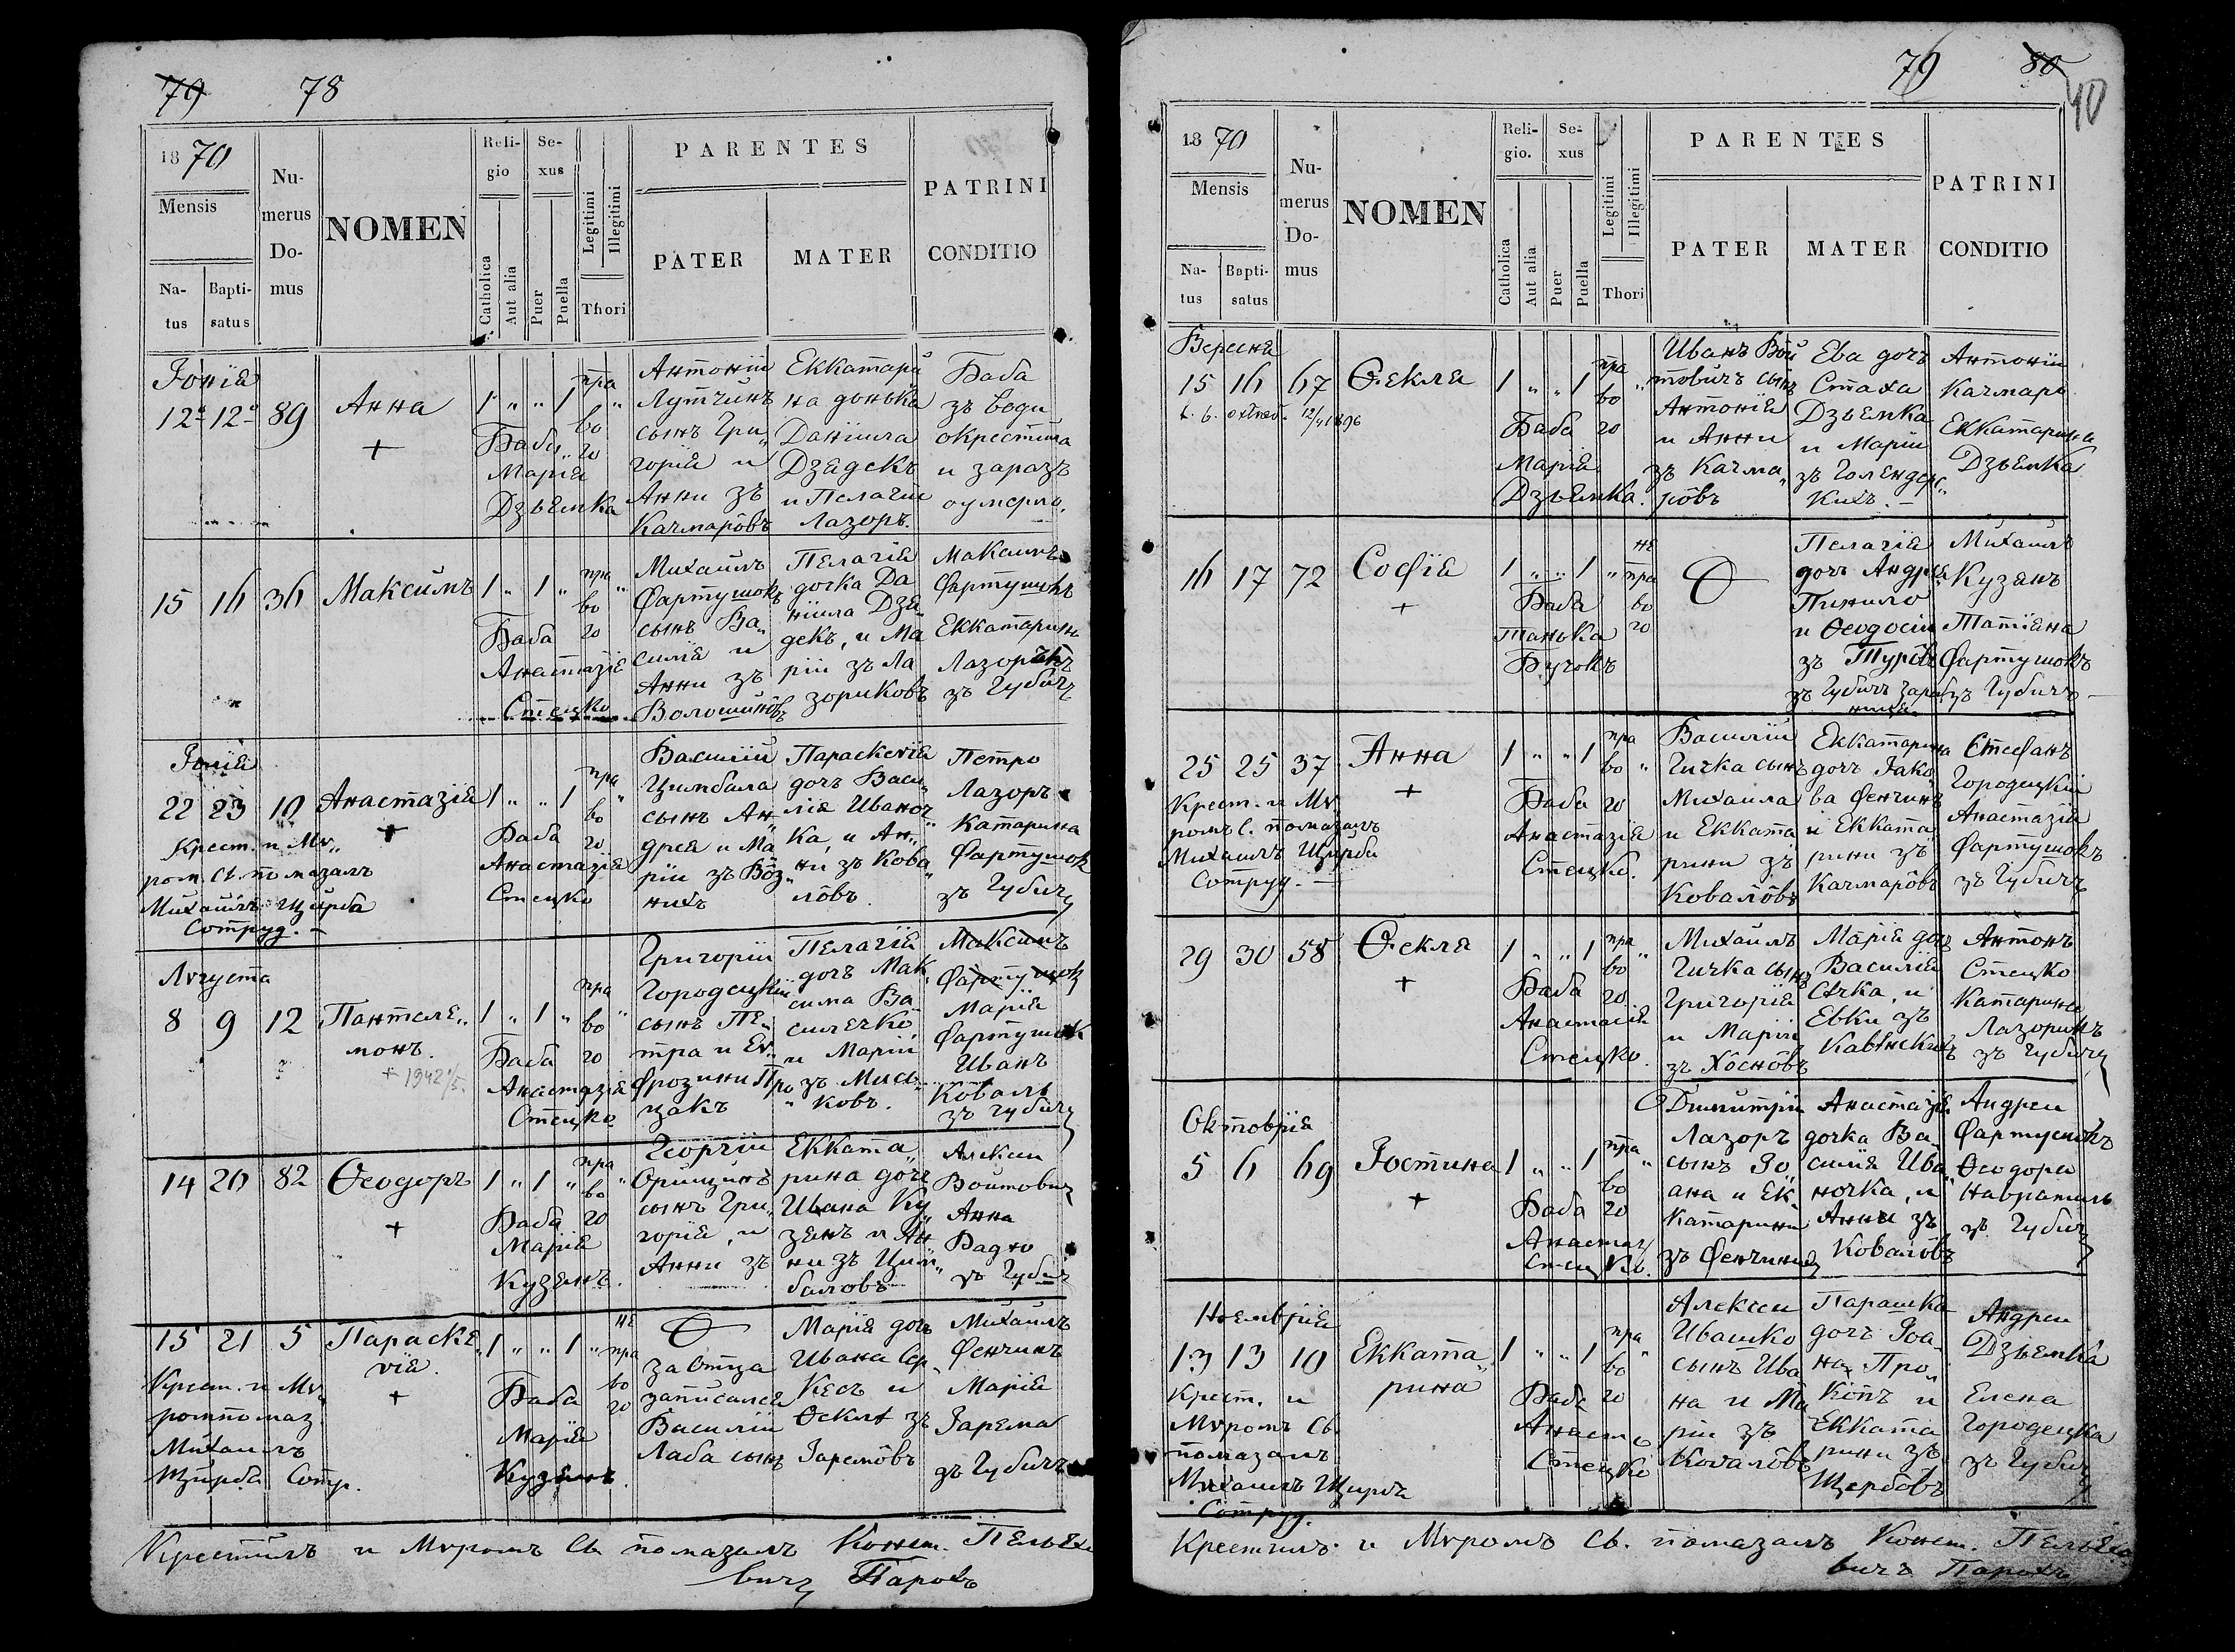 79 78
1870
Mensis
Na-
tus
Bapti-
satus
Nu-
merus
Do-
mus
NOMEN
Reli-
gio
Catholica
Aut alia
Se-
xus
Puer
Puella
Legitimi
Illegitimi
Thori
PARENTES
PATER
MATER
PATRINI
CONDITIO
Іюнія
12 12 89
Анна
+
1 „ „ 1
пра
во
го
Баба
Марія
Дзѣямка
Антоній
Лутчинъ
сынъ Гри„
горія и
Анни зъ
Качмарôвъ
Еккатари
на донька
Даніила
Дзядекъ
и Пелагіи
Лазоръ.
Баба
зъ води
окрестила
и заразъ
оумерло.
15 16 36
Максимъ
1 „ 1 „
пра
во
го
Баба
Анастазія
Стецко
Михаилъ
Фартушокъ
сынъ Ва„
силія и
Анни зъ
Волошинôвъ
Пелагія
дочка Да
ніила Дзя„
декъ, и Ма
ріи зъ Ла
зориковъ
Максимъ
Фартушокъ
Еккатарина
Лазорикъ
зъ Губичъ
Іюлія
22 23 10
Крест. и Мѵ„
ром. Св. помазалъ
Михаилъ Щирба
Сотруд. —
Анастазія
+
1 „ „ 1
пра
во
го
Баба
Анастазія
Стецко
Василій
Цимбала
сынъ Ан„
дрея и Ма
ріи зъ Вôз„
нихъ
Параскевія
дочъ Васи„
лія Иваноч„
ка, и Ан„
ни зъ Кова„
лôвъ.
Петро
Лазоръ
Катарина
Фартушок
зъ Губичъ
Августа
8 9 12
Пантеле„
монъ.
+ 1942
1 „ 1 „
пра
во
го
Баба
Анастазія
Стецко
Григорій
Городецкій
сынъ Пе„
тра и Еѵ„
фрозини Про
цакъ
Пелагія
дочъ Мак
сима Ва
силечко
и Маріи
зъ Мись„
ковъ.
Максимъ
Фартушок
Марія
Фартушок
Иванъ
Коваль
зъ Губичъ
14 20 82
Ѳеодоръ
+
1 „ 1 „
пра
во
го
Баба
Марія
Кузянъ.
Георгій
Орищинъ
сынъ Гри„
горія, и
Анни зъ
Екката„
рина дочъ
Ивана Ку
зянъ и Ан
ни зъ Цим„
баловъ
Алексій
Войтович
Анна
Бадно
зъ Губич
15 21 5
Крест. и Мѵ„
ром помаз.
Михаилъ
Щирба Сотр.
Параске„
вія.
+
1 „ „ 1
не
пра
во
го
Баба
Марія
Кузянъ.
За Отца
записался
Василій
Лаба сынъ
Марія дочъ
Ивана Сер„
кесъ и
Ѳеклы зъ
Яремôвъ
Михаилъ
Фенчинъ
Марія
Ярема
зъ Губичъ
Крестилъ и Мѵромъ Св. помазалъ Конст. Пелѣхо
вичъ Парохъ
79 80
40
1870
Mensis
Na-
tus
Bapti-
satus
Nu-
merus
Do-
mus
NOMEN
Reli-
gio.
Catholica
Aut alia
Se-
xus
Puer
Puella
Legitimi
Illegitimi
Thori
PARENTES
PATER
MATER
PATRINI
CONDITIO
Вересня
15 16 67
Ѳекля
1 „ „ 1
пра
во
го
Баба
Марія
Дзѣямка.
Иванъ Вôй
товичъ сынъ
Антонія
и Анни
зъ Качма„
рôвъ
Ева дочъ
Стаха
Дзѣямка
и Маріи
зъ Голендерс„
кихъ. —
Антоній
Качмаръ
Еккатарина
Дзѣямка
16 17 72
Софія
+
1 „ „ 1
не
пра
во
го
Баба
Танька
Бучокъ
Пелагія
дочъ Андрея
Пинило
и Ѳеодосіи
зъ Турôвъ
зъ Губичъ зароб
ниця
Михаилъ
Кузянъ
Татіяна
Фартушокъ
зъ Губичъ —
25 25 37
Крест. и Мѵ„
ромъ С. помазалъ
Михаилъ Щирба
Сотруд. —
Анна
+
1 „ „ 1
пра
во
го
Баба
Анастазія
Стецко.
Василій
Гичка сынъ
Михаила
и Екката
рини зъ
Ковалôвъ
Еккатарина
дочъ Яко„
ва Фенчинъ
и Екката
рини зъ
Качмарôвъ
Стефанъ
Городецкій
Анастазія
Фартушокъ
зъ Губичъ
29 30 58
Ѳекля
+
1 „ „ 1
пра
во
го
Баба
Анастасія
Стецко.
Михаилъ
Гичка сынъ
Григорія
и Маріи
зъ Хоснôвъ
Марія дочъ
Василія
Сячка, и
Евки зъ
Кавѣнскихъ
Антонъ
Стецко
Катарина
Лазорикъ
зъ Губичъ
Октоврія
5 6 69
Іостина
+
1 „ „ 1
пра
во
го
Баба
Анастаз
Стецко.
Димитрій
Лазоръ
сынъ Іо
ана и Ек
катарини
зъ Фенчиниц
Анастазія
дочка Ва„
силія Ива
ночка, и
Анни зъ
Ковалôвъ
Андрей
Фартушокъ
Ѳеодора
Навратиль
зъ Губичъ
Ноемврія
13 13 10
Крест. и
Мѵромъ Св.
помазалъ
Михаилъ Щирба
Сотруд.
Екката„
рина
1 „ „ 1
пра
во
го
Баба
Анаст.
Стецко
Алексій
Ивашко
сынъ Ива
на и Ма
ріи зъ
Ковалôвъ
Парашка
дочъ Іоа„
на Про„
кôпъ и
Екката
рини зъ
Щербôвъ
Андрей
Дзѣямка
Елена
Городецка
зъ Губичъ
Крестилъ и Мѵромъ Св. помазалъ Конст. Пелѣхо
вичъ Парохъ